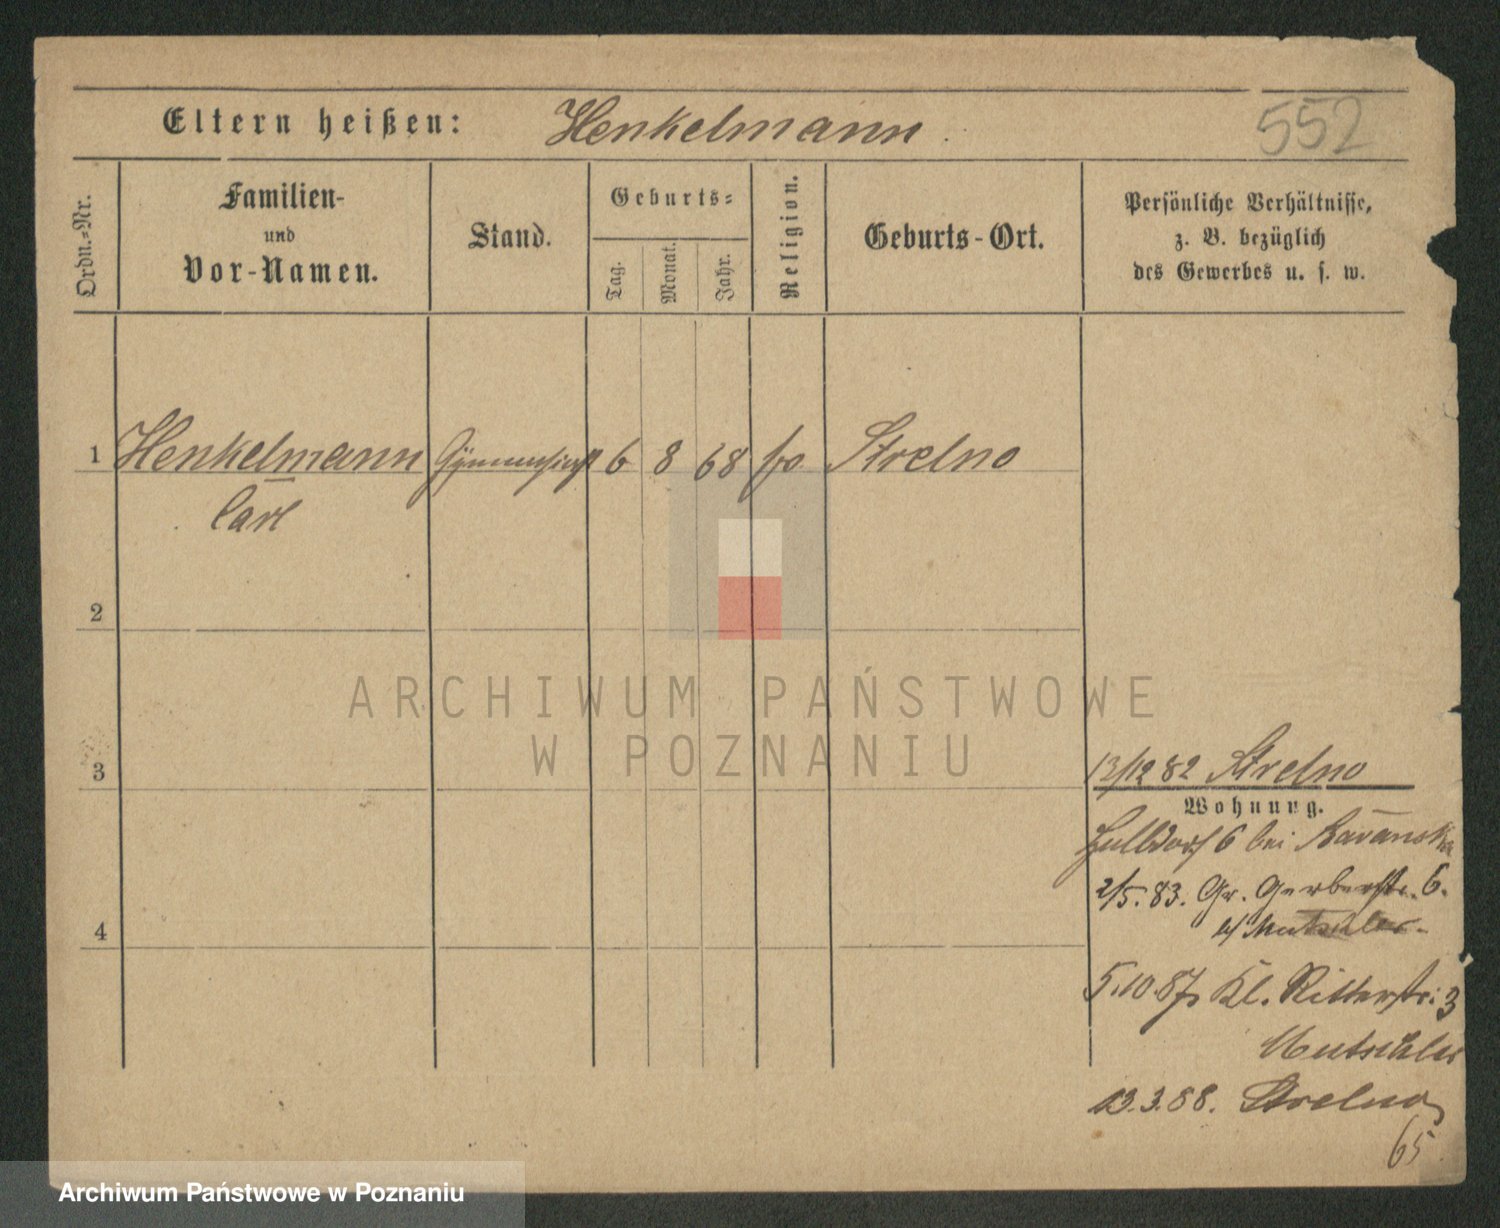 Eltern heißen: Henkelmann 552
Ordn.-Nr.
Familien-
und
Vor-Namen.
Stand.
Geburts-
Tag.
Monat.
Jahr.
Religion.
Geburts-Ort.
Persönliche Verhältnisse,
z. B. bezüglich
des Gewerbes u. s. w.
1 Henkelmann 6 8 68 Strelno
Carl
2
ARCHIWUM PAŃSTWOWE
W POZNANIU
3
13/12 82 Strelno
Wohnung.
6 bei
2/5. 83. Gr. Gerberstr. 6.
4
5.10.87 Kl. Ritterstr: 3
Mutschler
13.3.88. Strelno
65
Archiwum Państwowe w Poznaniu